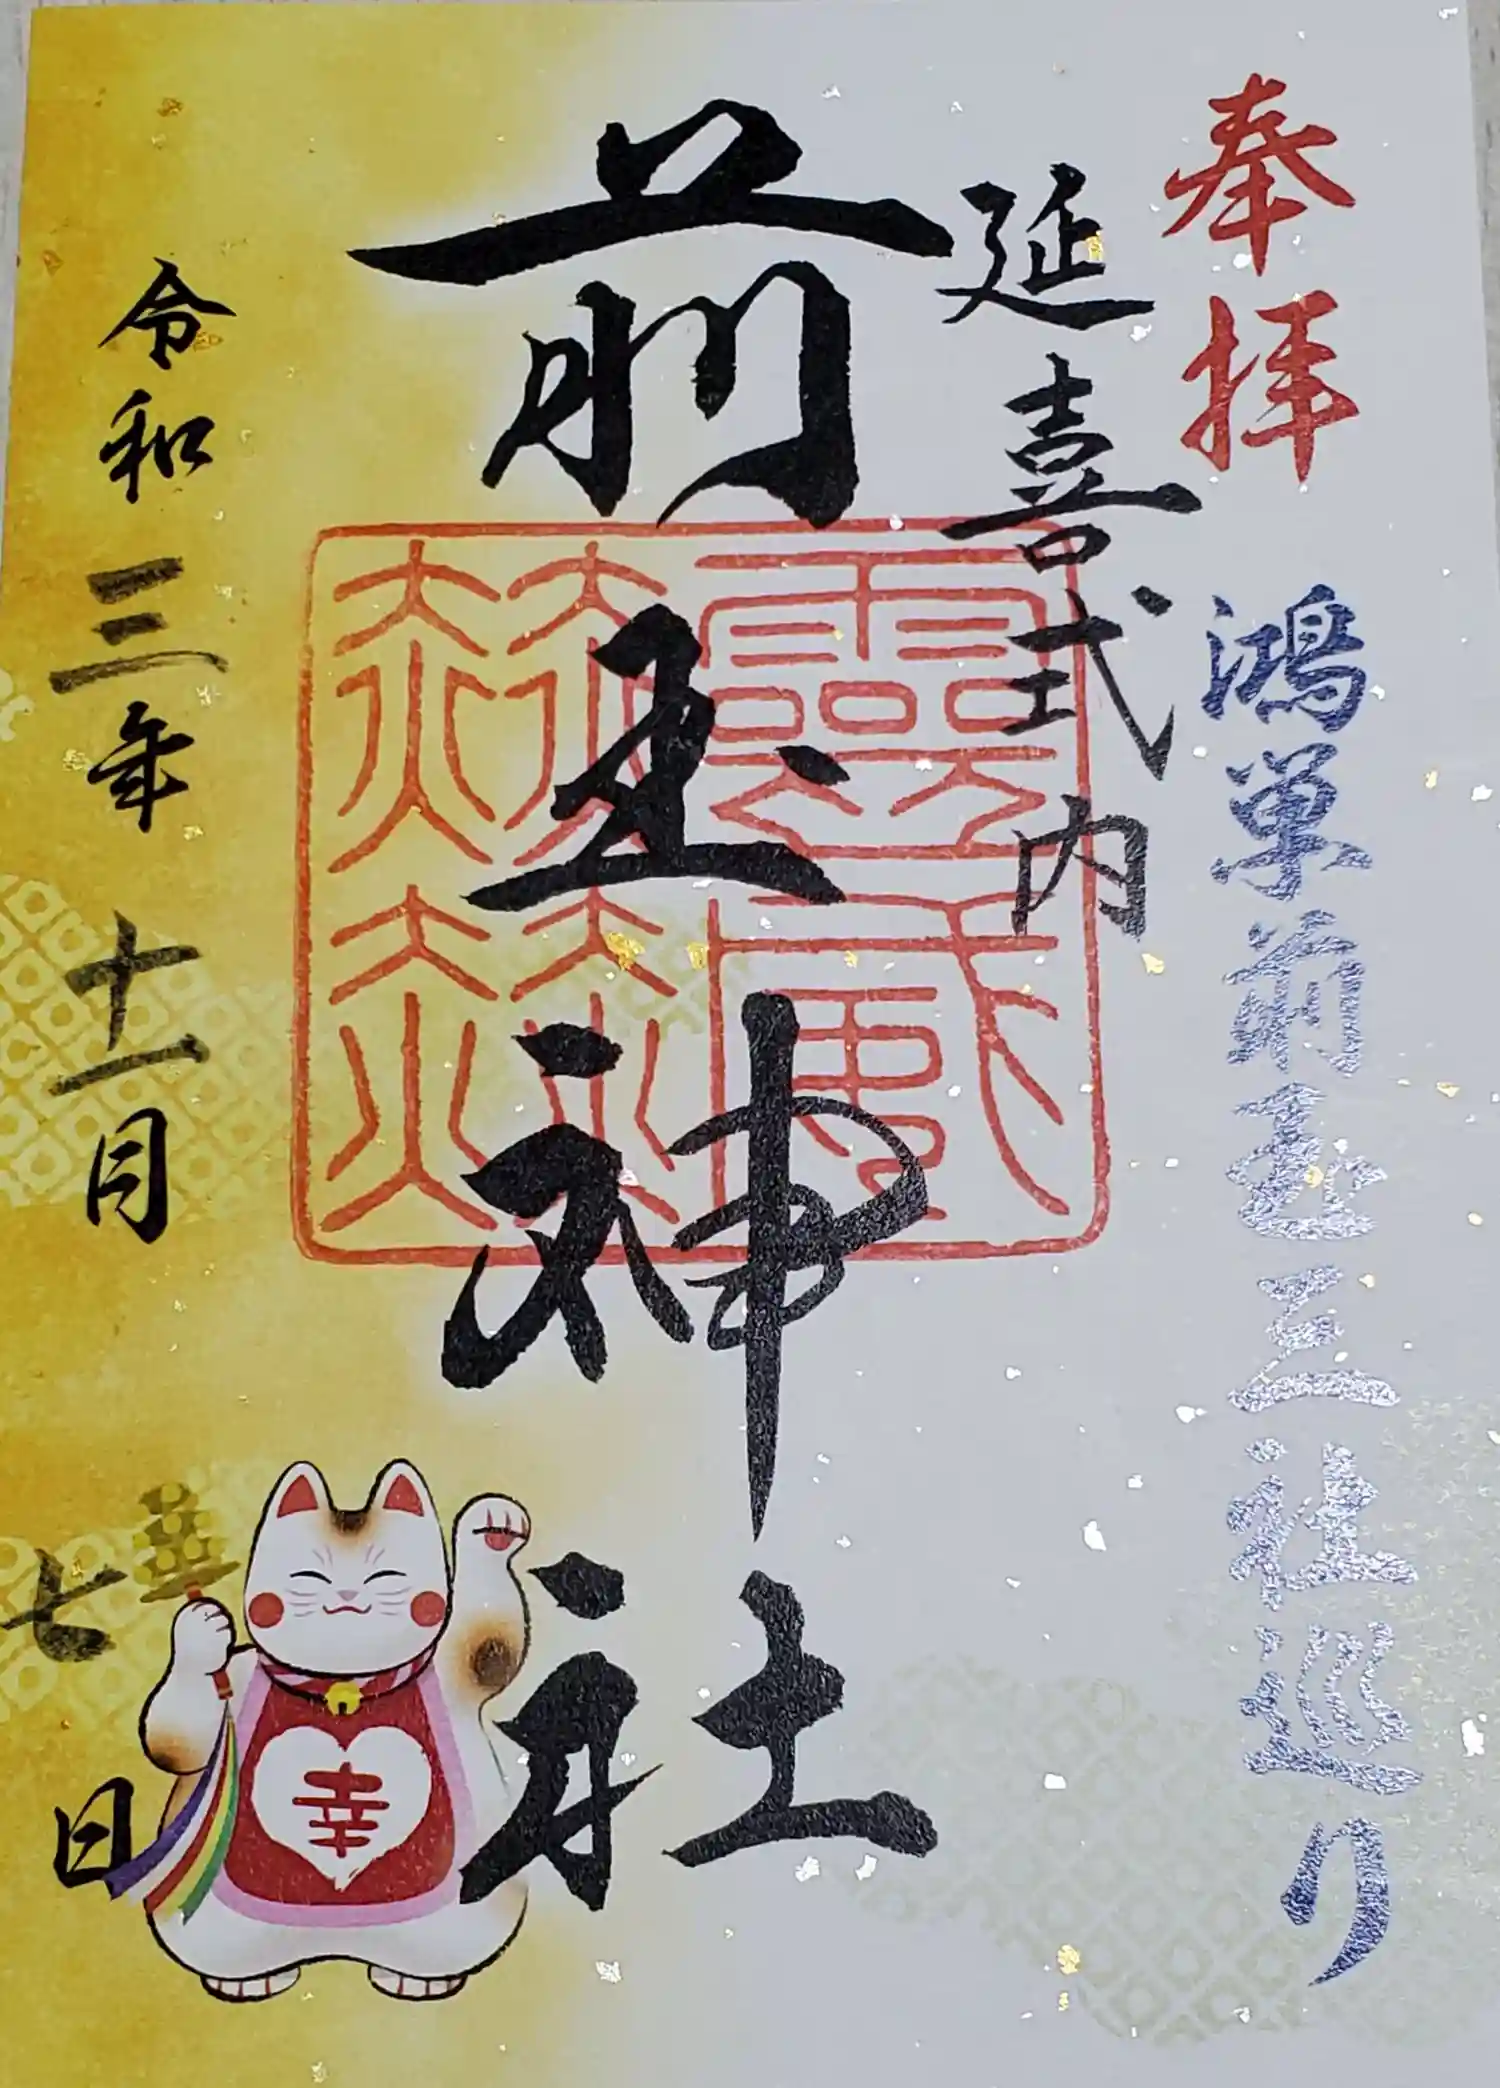 奉拝
鴻巣前玉三社巡り
延喜式内
前玉神社
令和三年十一月七日
幸